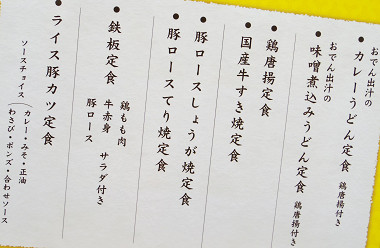 おでん出汁の
●カレーうどん定食 鶏唐揚付き
おでん出汁の
●味噌煮込みうどん定食 鶏唐揚付き
●鶏唐揚定食
●国産牛すき焼定食
●豚ロースしょうが焼定食
●豚ロースてり焼定食
●鉄板定食
鶏もも肉
牛赤身 サラダ付き
豚ロース
●ライス豚カツ定食
ソースチョイス
カレー・みそ・正油
わさび・ポンズ・合わせソース